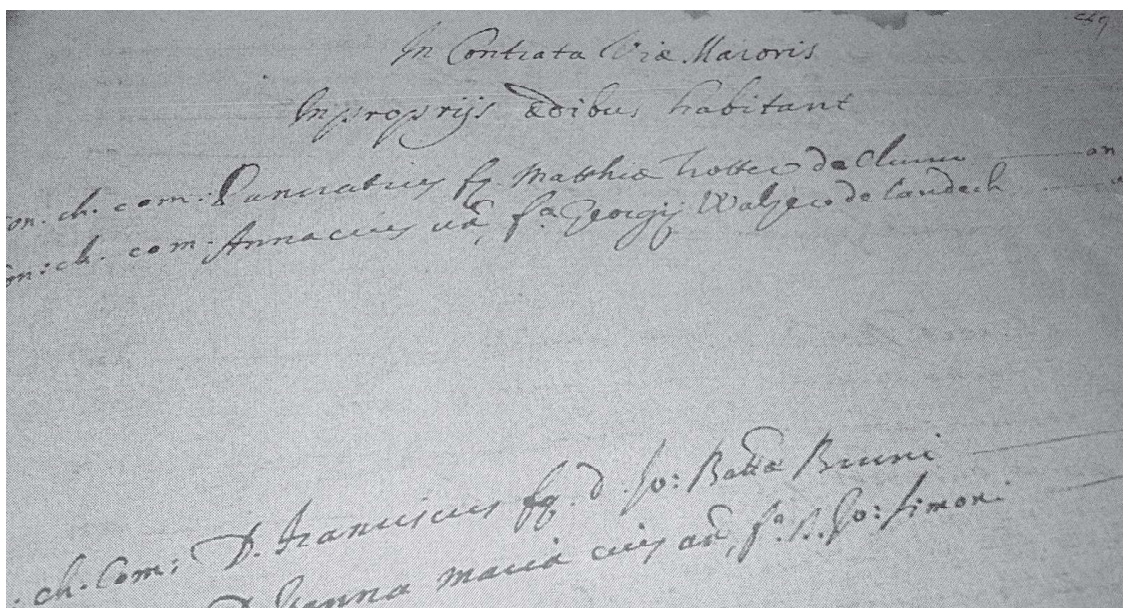 In Contrata Viæ Maioris
In proprijs ædibus habitant
on. ch. com: Pancratius fq. Matthiæ Trotter de Clum on
on: ch. com: Anna eius ux, fa Georgij Walzer de Landech
. ch. Com: D. Franciscus fq. d. Jo: Batta Bruni
D. Joanna Maria eius ux, fa. Jo: Simoni